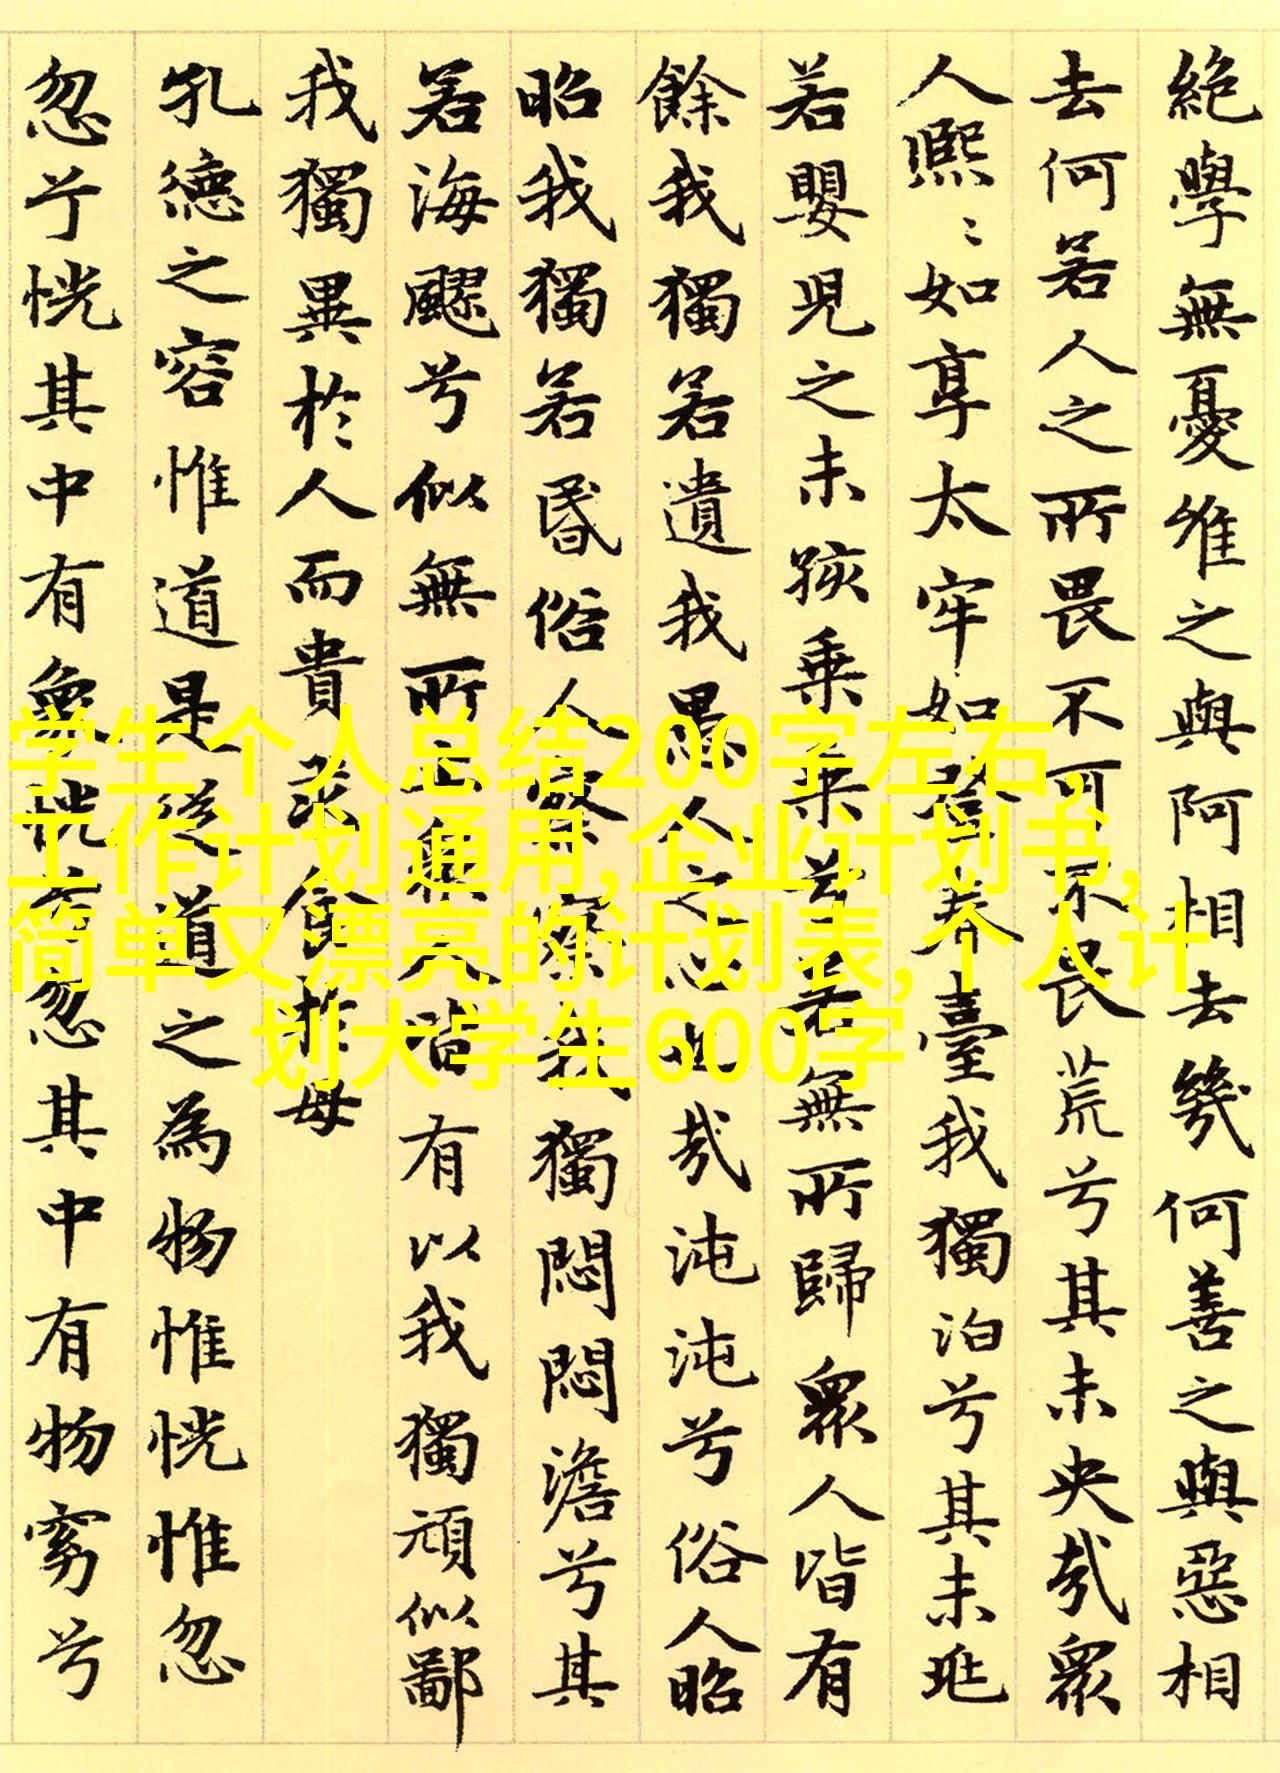 絶學無憂唯之與阿相去幾何善之與惡相
去何若人之所畏不可不畏荒兮其未央哉眾
人熙〻如享太牢如登春臺我獨泊兮其未兆
若嬰兒之未孩乗乗兮若無所歸眾人皆有
餘我獨若遺我愚人之心也哉沌沌兮俗人昭
昭我獨若昏俗人察察我獨悶悶澹兮其
若海飂兮似無所止眾人皆有以我獨頑似鄙
我獨異於人而貴求食於母
孔德之容惟道是從道之為物惟恍惟忽
忽兮恍其中有象恍兮忽其中有物窈兮
学生个人总结200字左右,
工作计划通用,企业计划书,
简单又漂亮的计划表,个人计
划大学生600字